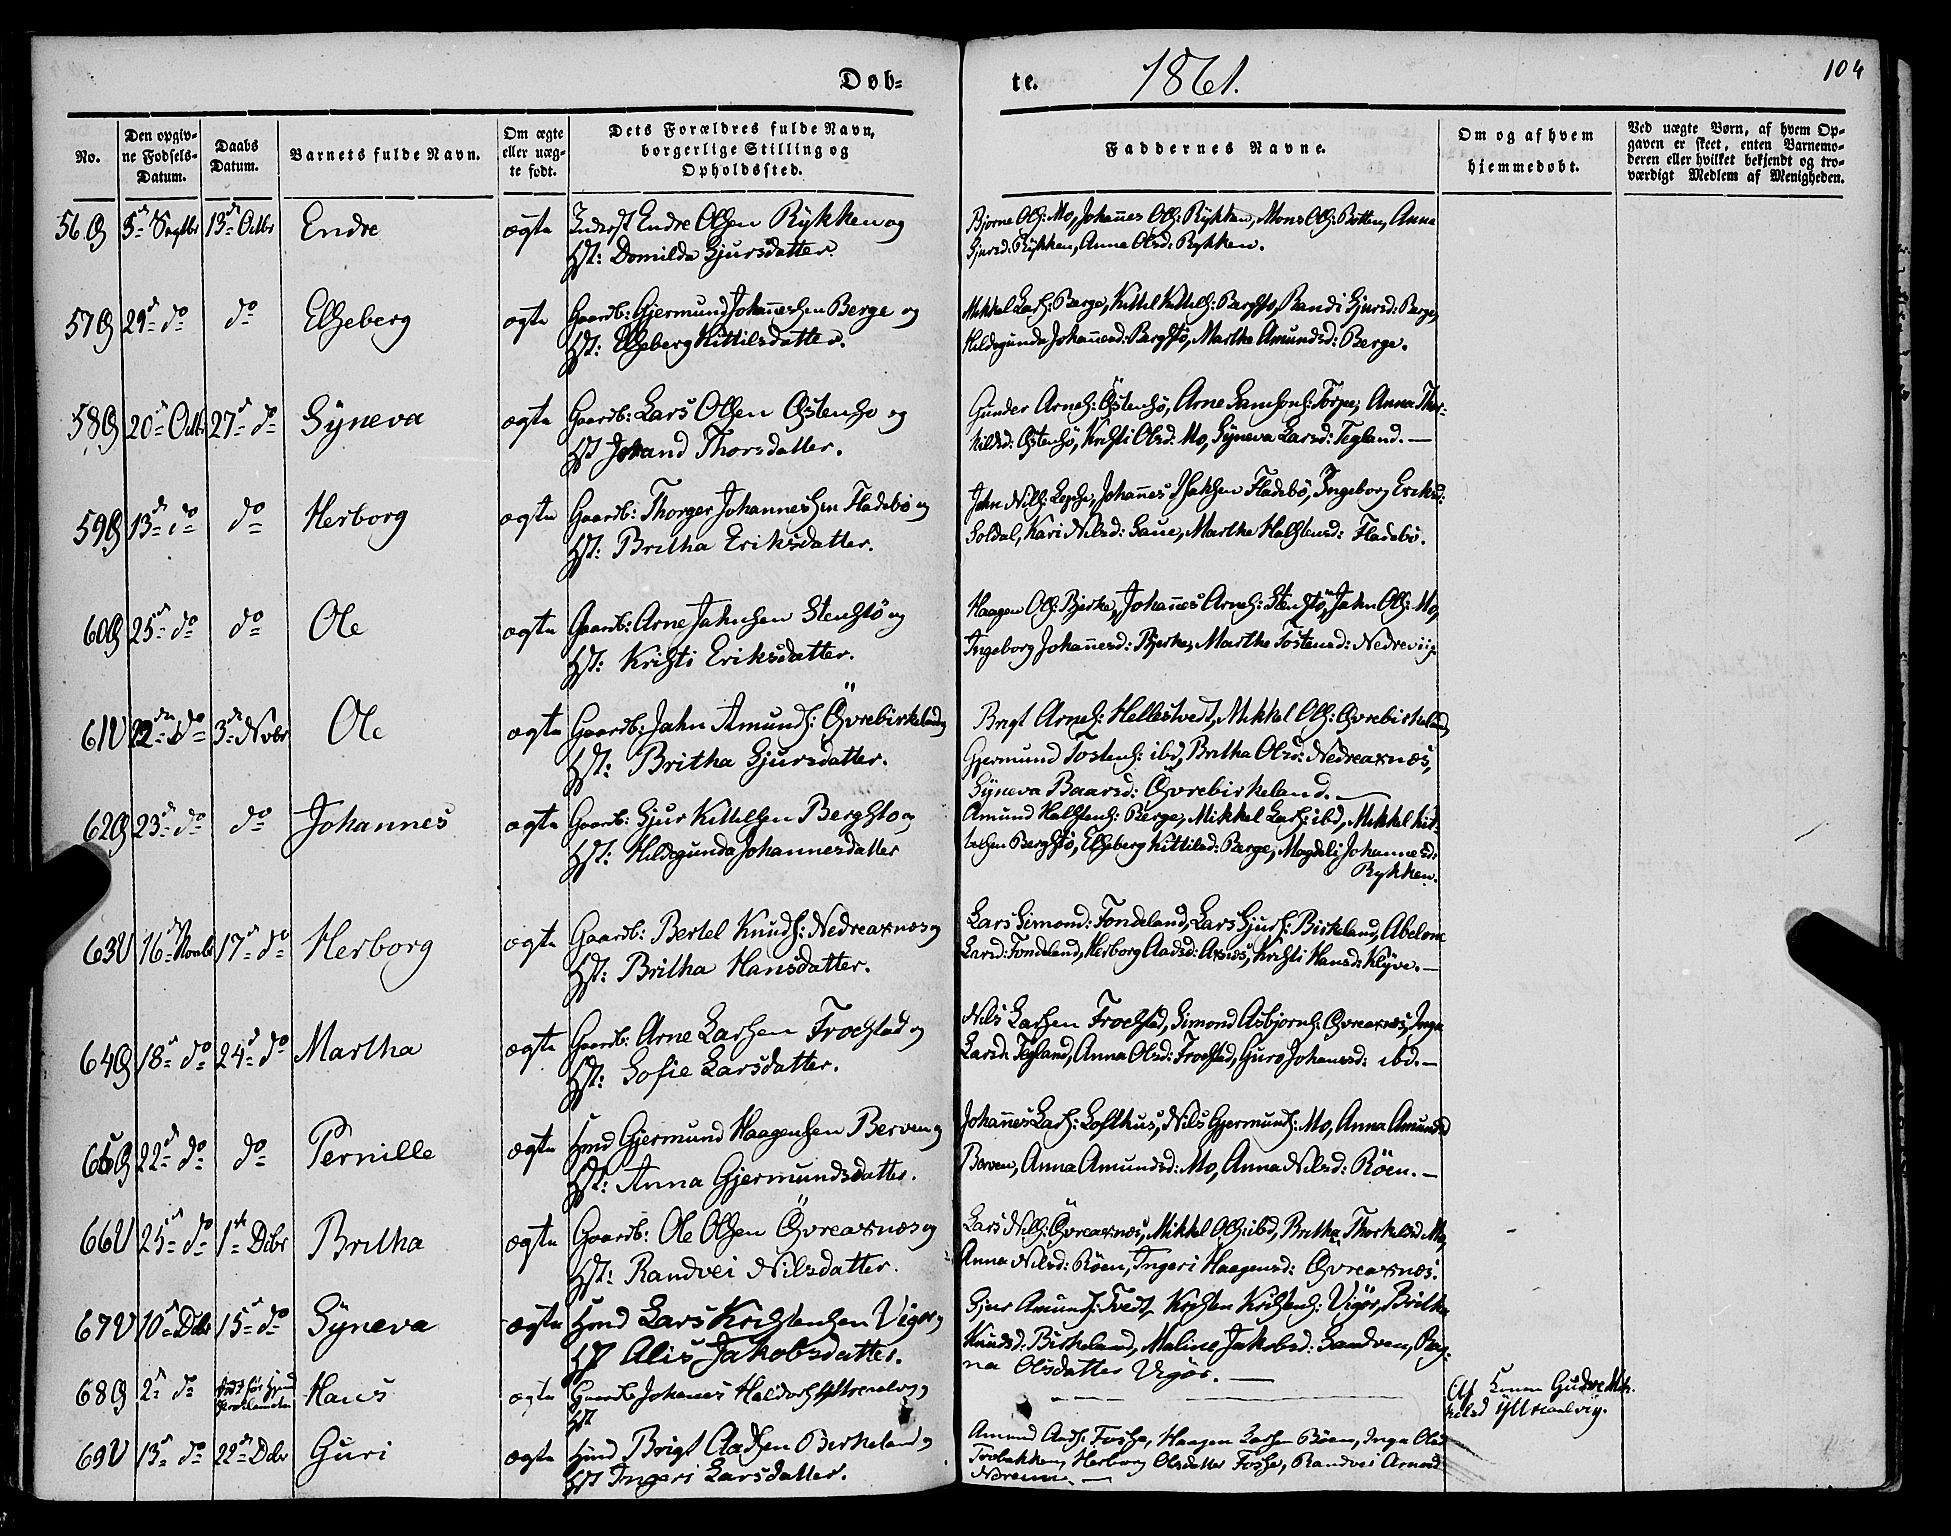 Døb-
te.
1861.
104
No.
Den opgiv-
ne Fødsels-
Datum.
Daabs
Datum.
Barnets fulde Navn.
Om ægte
eller uæg-
te født.
Dets Forældres fulde Navn,
borgerlige Stilling og
Opholdssted.
Faddernes Navne.
Om og af hvem
hjemmedøbt.
Ved uægte Børn, af hvem Op-
gaven er skeet, enten Barnemo-
deren eller hvilket bekjendt og tro-
værdigt Medlem af Menigheden.
56 G 5d Septbr 13d Octbr Endre ægte Endre Olsen Rykken og
Hst: Domilda Sjursdatter.
Bjorne Ols: Mo, Johannes Ols: Rykken, Mons Ols: Botten, Anna
Sjursd: Rykken, Anna Olsd: Rykken.
57 G 29d do do Elseberg ægte Gaardb: Gjermund Johannessen Berge og
Hst: Elseberg Kittilsdatter.
Mikkel Lars: Berge, Kittel Kittels: Bergstø, Randi Sjursd: Berge,
Hildegunda Johannesd: Bergstø, Martha Amundsd: Berge.
58 G 20d Octb 27d do Syneva ægte Gaardb: Lars Olsen Østensø og
Hst Jorand Thorsdatter.
Gunder Arnes: Østensø, Arne Samsons: Torpe, Anna Thor-
kildsd: Østensø, Kristi Olsd: Mo, Syneva Larsd: Tegland. —
59 G 13d do do Herborg ægte Gaardb: Thorger Johannessen Fladebø og
Hst: Britha Eriksdatter.
Jahn Nils: Lepse, Johannes Isaksen Fladebø, Ingeborg Eriksd:
Soldal, Kari Nilsd: Saue, Martha Halstensd: Fladebø.
60 G 25d do do Ole ægte Gaardb: Arne Jahnsen Stenstø og
Hst: Kristi Eriksdatter.
Haagen Ols: Bjerke, Johannes Arnes: Stenstø, Jahn Ols: Mo,
Ingeborg Johannesd: Bjerke, Martha Tostensd: Nedrevig.
61 U 22de do 3de Novbr Ole ægte Gaardb: Jahn Amunds: Øvrebirkeland og
Hst: Britha Sjursdatter.
Brigt Arnes: Hellestvedt, Mikkel Ols: Øvrebirkeland
Gjermund Tostens: ibd, Britha Olsd: Nedreaxnæs,
Syneva Baarsd: Øvrebirkeland. —
62 G 23d do do Johannes ægte Gaardb: Sjur Kittelsen Bergstø og
Hst: Hildegunda Johannesdatter
Amund Halstens: Berge, Mikkel Lars: ibd, Mikkel Kit-
telsen Bergstø, Elseberg Kittilsd: Berge, Magdeli Johannesd:
Rykken.
63 U 16d Novbr 17d do Herborg ægte Gaardb: Bertel Knuds: Nedreaxnæs og
Hst: Britha Hansdatter.
Lars Simond: Tondeland, Lars Sjurs: Birkeland, Abelone
Larsd: Tondeland, Herborg Aadsd: Axnæs, Kristi Hansd: Klyve. —
64 G 18d do 24d do Martha ægte Gaardb: Arne Larsen Froestad og
Hst: Sofie Larsdatter.
Nils Larsen Froestad, Simond Asbjorns: Øvreaxnæs, Inga
Larsd: Tegland, Anna Olsd: Froestad, Guro Johannesd: ibd. —
65 G 22d do do Pernille ægte Hmd Gjermund Haagensen Berven og
Hst: Anna Gjermundsdatter.
Johannes Lars: Lofthus, Nils Gjermunds: Mo, Anna Amundsd
Berven, Anna Amundsd: Mo, Anna Nilsd: Røen. —
66 U 25d do 1ste Dcbr Britha ægte Gaardb: Ole Olsen Øvreaxnæs og
Hst: Randvei Nilsdatter.
Lars Nils: Øvreaxnæs, Mikkel Ols: ibd, Britha Thorkelsd Mo,
Anna Nilsd: Røen, Ingeri Haagensd: Øvreaxnæs.
67 U 10d Dcbr 15d do Syneva ægte Hmd Lars Kristensen Vigør og
Hst Alis Jakobsdatter.
Sjur Amunds: Tvedt, Kristen Kristens: Vigør, Britha
Knudsd: Birkeland, Maline Jakobsd: Sandven, Rag-
na Olsdatter Vigør. —
68 G 2d do Hans ægte Gaardb Johannes Haldors: Ytreaalvig og
Hst
Af Konen Gudve Mik-
kelsd Yttreaalvig.
69 U 13d do 22de Dcbr Guri ægte Hmd Brigt Aadsen Birkeland og
Hst Ingeri Larsdatter.
Amund Aads: Fosse, Haagen Larsen Røen, Inga Olsd
Trobakken, Herborg Olsdatter Fosse, Randvei Arnesd: